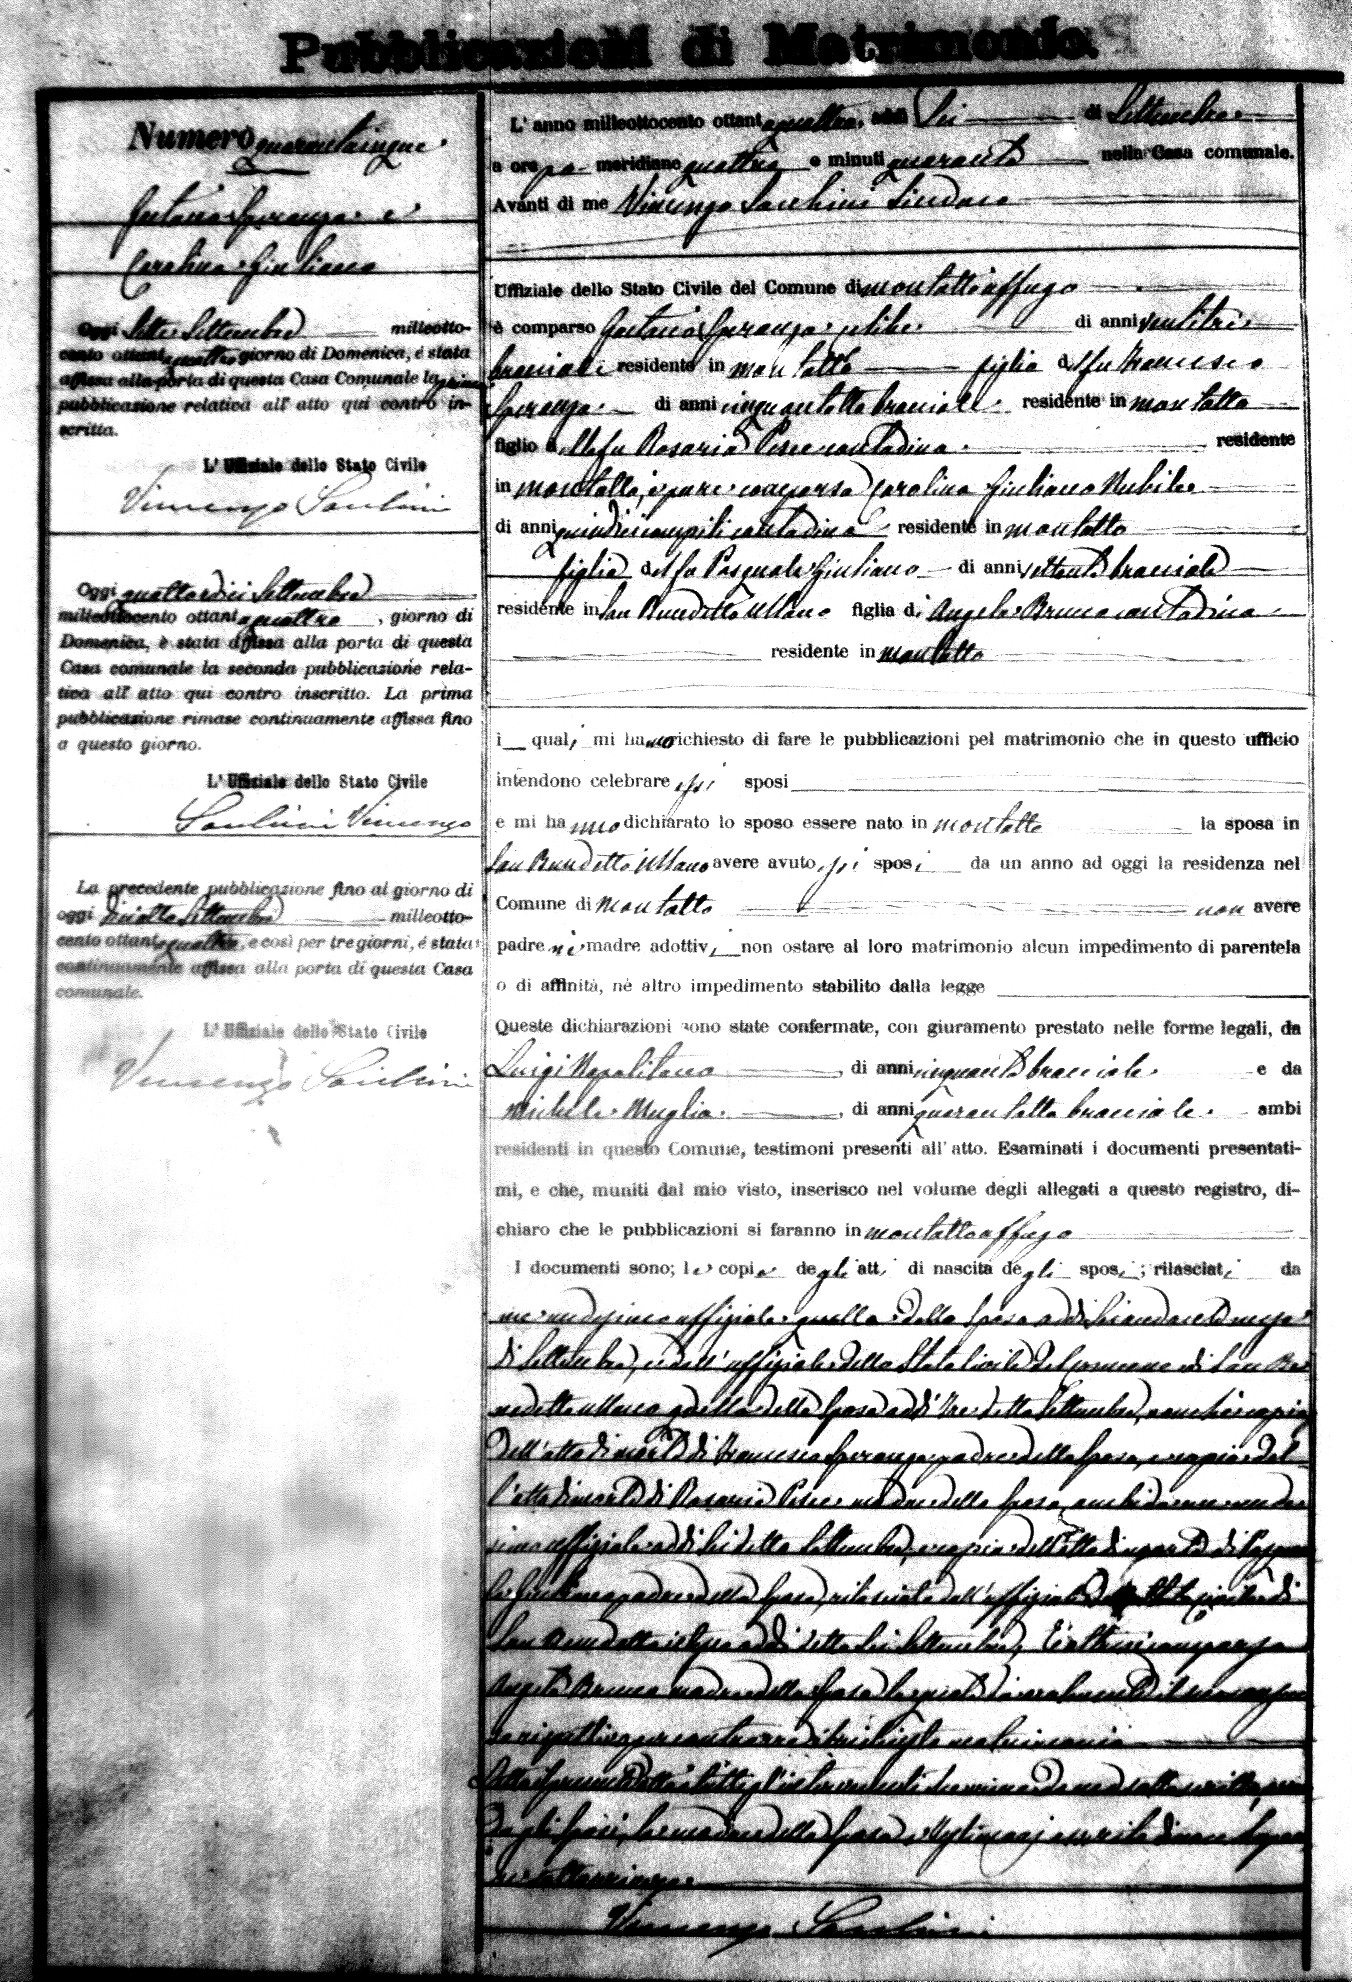 Pubblicazioni di Matrimonio.
Numero quarantacinque
Gaetano Speranza e
Carolina Giuliano
Oggi sette Settembre milleotto-
cento ottantaquattro giorno di Domenica, é stata
affissa alla porta di questa Casa Comunale la prima
pubblicazione relativa all' atto qui contro in-
scritta.
L' Uffiziale dello Stato Civile
Vincenzo
Oggi quattordici Settembre
milleottocento ottantaquattro, giorno di
Domenica, è stata affissa alla porta di questa
Casa comunale la seconda pubblicazione rela-
tica all' atto qui contro inscritto. La prima
pubblicazione rimase continuamente affissa fino
a questo giorno.
L' Uffiziale dello Stato Civile
Vincenzo
La precedente pubblicazione fino al giorno di
oggi diciotto Settembre milleotto-
cento ottantaquattro, e così per tre giorni, é stata
continuamente affissa alla porta di questa Casa
comunale.
L' Uffiziale dello Stato Civile
Vincenzo
L' anno milleottocento ottantaquattro, addì Sei di Settembre
a ore po meridiane quattro e minuti quaranta nella Casa comunale.
Avanti di me Vincenzo Sindaco
Uffiziale dello Stato Civile del Comune di montaltouffugo
è comparso Gaetano Speranza celibe di anni ventitre
bracciale residente in montalto figlio del fu Francesco
Speranza di anni cinquantotto bracciale residente in montalto
figlio della fu Rosaria Pesce contadina residente
in montalto, è pure comparsa Carolina Giuliano Nubile
di anni quindici compiti contadina residente in montalto
figlia del fu Pasquale Giuliano di anni settanta bracciale
residente in San Benedetto Ullano figlia di Angela Bruno contadina
residente in montalto
i quali mi hanno richiesto di fare le pubblicazioni pel matrimonio che in questo ufficio
intendono celebrare essi sposi
e mi hanno dichiarato lo sposo essere nato in montalto la sposa in
San Benedetto Ullano avere avuto essi sposi da un anno ad oggi la residenza nel
Comune di Montalto non avere
padre nè madre adottivi non ostare al loro matrimonio alcun impedimento di parentela
o di affinità, nè altro impedimento stabilito dalla legge
Queste dichiarazioni sono state confermate, con giuramento prestato nelle forme legali, da
Luigi Napolitano, di anni cinquanta bracciale e da
Michele Muglia, di anni quarantotto bracciale ambi
residenti in questo Comune, testimoni presenti all' atto. Esaminati i documenti presentati-
mi, e che, muniti dal mio visto, inserisco nel volume degli allegati a questo registro, di-
chiaro che le pubblicazioni si faranno in montaltouffugo
I documenti sono; le copie degli atti di nascita degli sposi; rilasciati da
me medesimo uffiziale quella dello sposo addì Sei andante mese
di Settembre, e dall' uffiziale dello Stato Civile del comune di San Be
nedetto Ullano quella della sposa addì tre detto Settembre, copia
dell' atto di morte di Francesco Speranza padre dello sposo, e copia del
l' atto di morte di Rosaria Pesce madre dello sposo, da me mede
simo uffiziale addì Sei detto Settembre, e copia dell' atto di morte di Pasqua
le Giuliano padre della sposa, rilasciata dall' uffiziale dello Stato civile di
San Benedetto Ullano addì detto Sei Settembre, È altresì comparsa
Angela Bruno madre della sposa la quale
matrimonio
dagli sposi, la madre della sposa e testimoni
Vincenzo